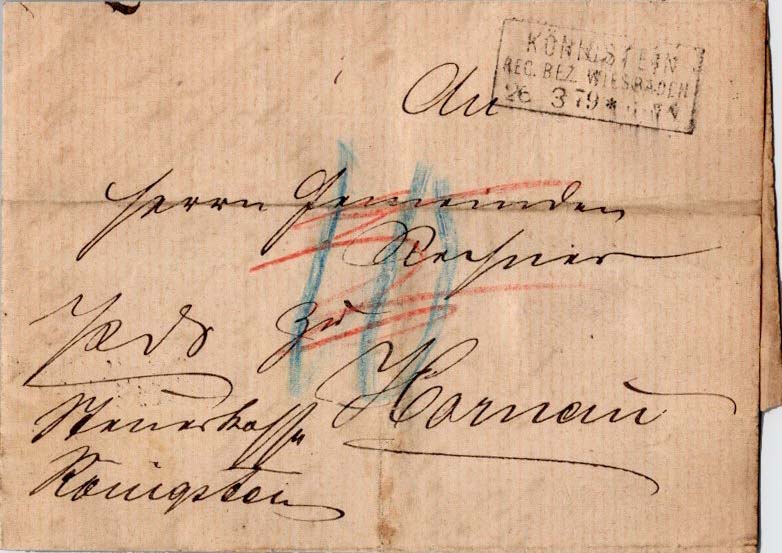 KÖNIGSTEIN
REG. BEZ. WIESBADEN
26 3 79 *
An
Herrn Gemeinden
Rechner
zu
Hornau
Steuerkasse
Königstein
10